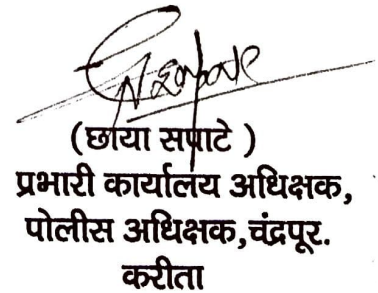 (छाया सपाटे )
प्रभारी कार्यालय अधिक्षक,
पोलीस अधिक्षक,चंद्रपूर.
करीता